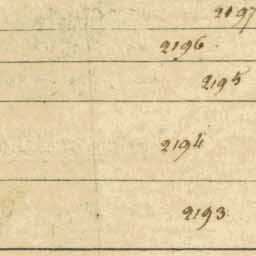 2197
2196.
2195
2194
2193.